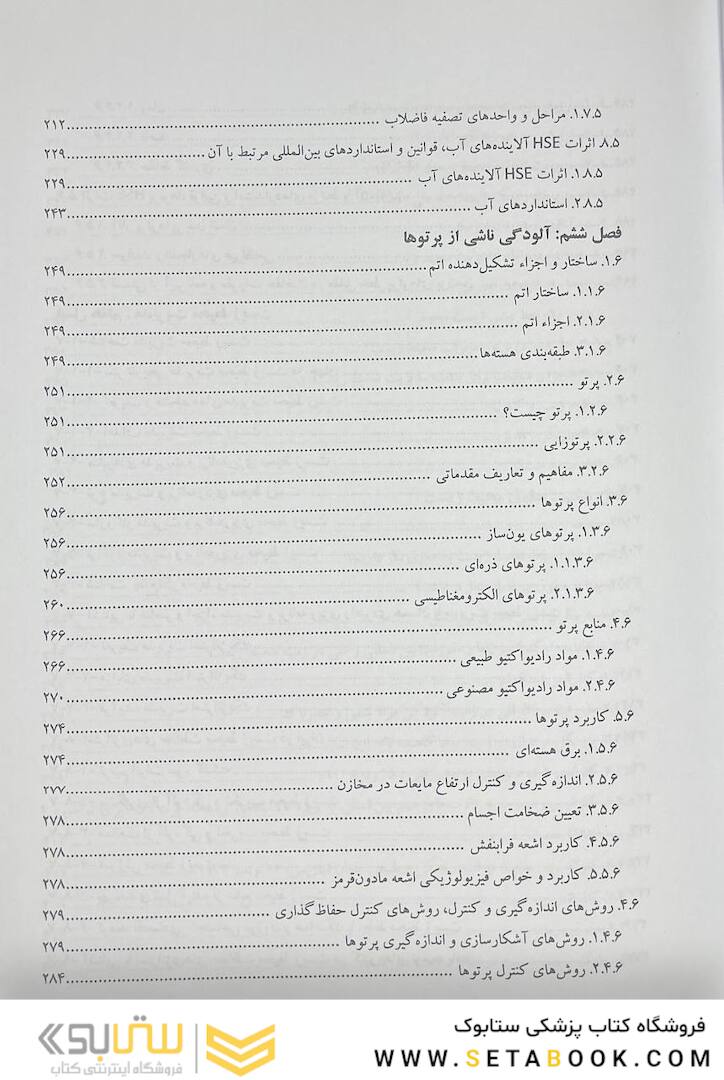 ۱.۷.۵. مراحل و واحدهای تصفیه فاضلاب ........ ۲۱۲
۸.۵ اثرات HSE آلاینده‌های آب، قوانین و استانداردهای بین‌المللی مرتبط با آن ........ ۲۲۹
۱.۸.۵. اثرات HSE آلاینده‌های آب ........ ۲۲۹
۲.۸.۵. استانداردهای آب ........ ۲۴۳
فصل ششم: آلودگی ناشی از پرتوها
۱.۶. ساختار و اجزاء تشکیل‌دهنده اتم ........ ۲۴۹
۱.۱.۶. ساختار اتم ........ ۲۴۹
۲.۱.۶. اجزاء اتم ........ ۲۴۹
۳.۱.۶. طبقه‌بندی هسته‌ها ........ ۲۴۹
۲.۶. پرتو ........ ۲۵۱
۱.۲.۶. پرتو چیست؟ ........ ۲۵۱
۲.۲.۶. پرتوزایی ........ ۲۵۱
۳.۲.۶. مفاهیم و تعاریف مقدماتی ........ ۲۵۲
۳.۶. انواع پرتوها ........ ۲۵۶
۱.۳.۶. پرتوهای یون‌ساز ........ ۲۵۶
۱.۱.۳.۶. پرتوهای ذره‌ای ........ ۲۵۶
۲.۱.۳.۶. پرتوهای الکترومغناطیسی ........ ۲۶۰
۴.۶. منابع پرتو ........ ۲۶۶
۱.۴.۶. مواد رادیواکتیو طبیعی ........ ۲۶۶
۲.۴.۶. مواد رادیواکتیو مصنوعی ........ ۲۷۰
۵.۶. کاربرد پرتوها ........ ۲۷۴
۱.۵.۶. برق هسته‌ای ........ ۲۷۴
۲.۵.۶. اندازه‌گیری و کنترل ارتفاع مایعات در مخازن ........ ۲۷۷
۳.۵.۶. تعیین ضخامت اجسام ........ ۲۷۸
۴.۵.۶. کاربرد اشعه فرابنفش ........ ۲۷۸
۵.۵.۶. کاربرد و خواص فیزیولوژیکی اشعه مادون‌قرمز ........ ۲۷۸
۴.۶. روش‌های اندازه‌گیری و کنترل، روش‌های کنترل حفاظ‌گذاری ........ ۲۷۹
۱.۴.۶. روش‌های آشکارسازی و اندازه‌گیری پرتوها ........ ۲۷۹
۲.۴.۶. روش‌های کنترل پرتوها ........ ۲۸۴
فروشگاه کتاب پزشکی ستابوک
WWW.SETABOOK.COM
ستابوک
فروشگاه اینترنتی کتاب